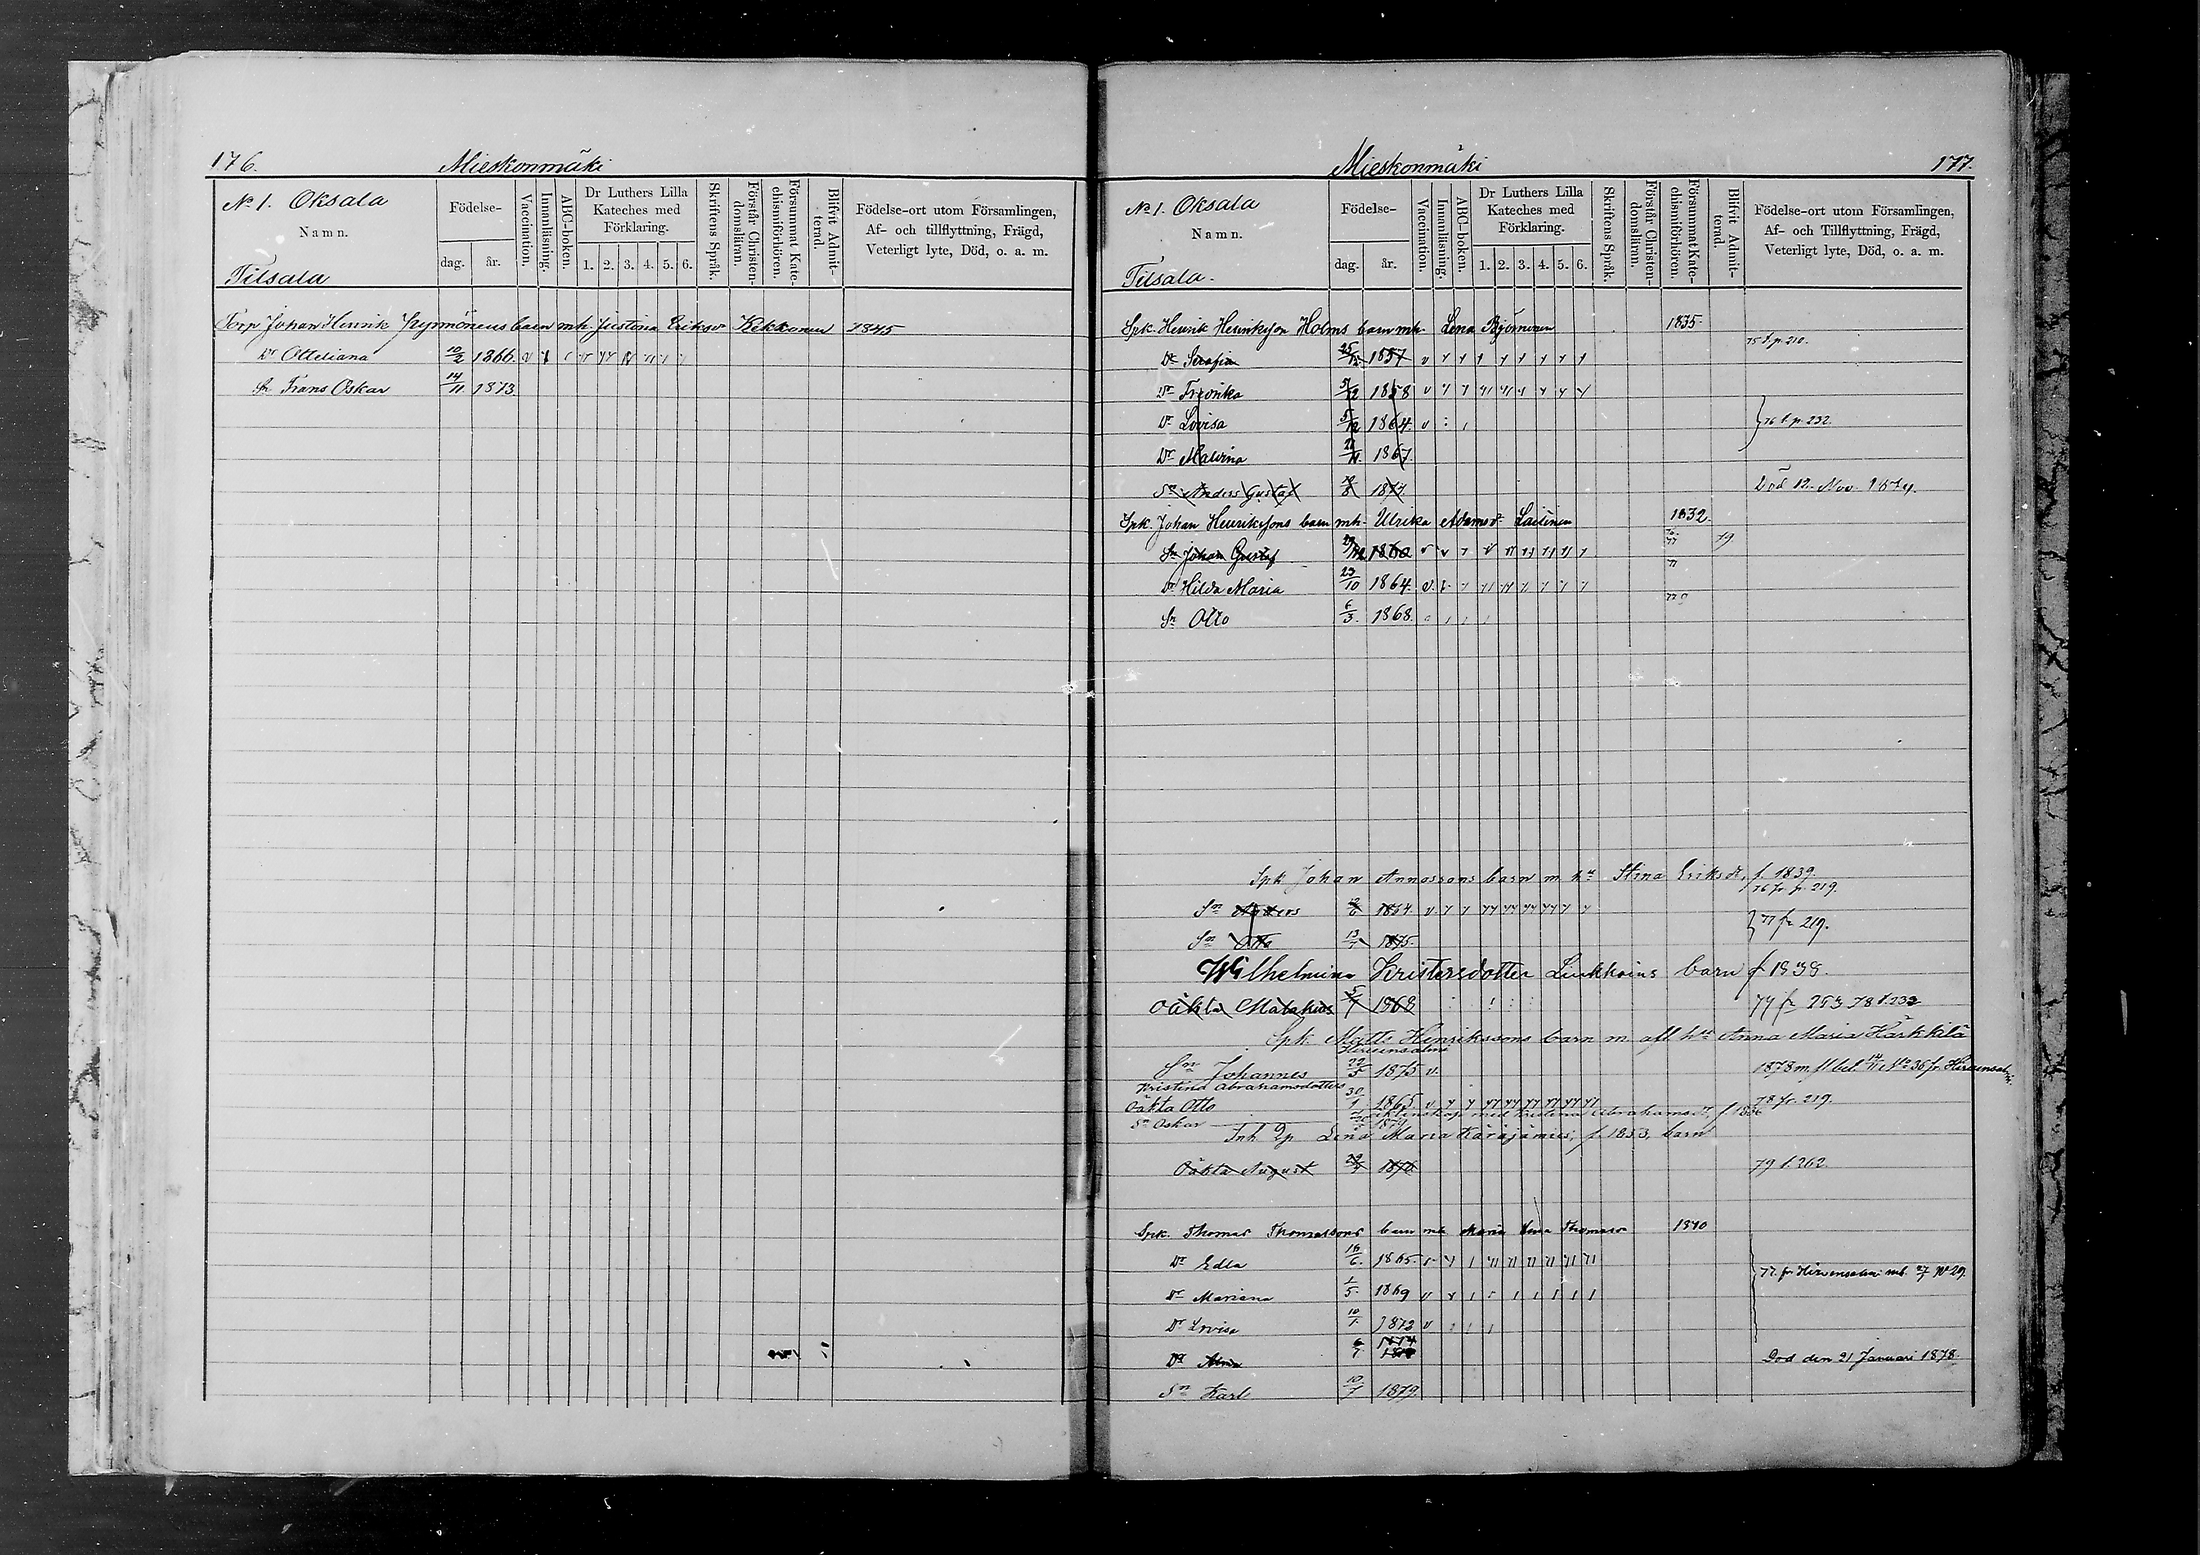 176. Mieskonmäki
No 1. Oksala
Namn.
Tilsala
Födelse-
dag. år.
Vaccination.
Innanläsning.
ABC-boken.
Dr Luthers Lilla
Kateches med
Förklaring.
1. 2. 3. 4. 5. 6.
Skriftens Språk.
Förstår Christen-
domsläran.
Försummat Kate-
chismiförhören.
Blifvit Admit-
terad.
Födelse-ort utom Församlingen,
Af- och tillflyttning, Frägd,
Veterligt lyte, Död, o. a. m.
Torp Johan Henrik barn mh. Justina Eriksdr Kekkonen 1845
Dr Otteliana 10/2 1866
Sn Frans Oskar 14/11 1873
Mieskonmäki 177.
No 1. Oksala
Namn.
Tilsala.
Födelse-
dag. år.
Vaccination.
Innanläsning.
ABC-boken.
Dr Luthers Lilla
Kateches med
Förklaring.
1. 2. 3. 4. 5. 6.
Skriftens Språk.
Förstår Christen-
domsläran.
Försummat Kate-
chismiförhören.
Blifvit Admit-
terad.
Födelse-ort utom Församlingen,
Af- och Tillflyttning, Frägd,
Veterligt lyte, Död, o. a. m.
Spk. Henrik Henriksson Holms barn mh. Lena Björninen 1835.
Dr Serafia 1857 75 f. p. 210.
Dr Fredrika 5/12 1858
Dr Lovisa 5/12 1864. 76 f. p. 232.
Dr Malvina 1867.
Sn Anders Gustaf Död 12. Nov.
Spk. Johan Henrikssons barn mh. Ulrika Adamsdr Laitinen 1832.
Sn Johan Gustaf 1860 79
Dr Hilda Maria 23/10 1864.
Sn Otto 6/3. 1868.
Spk Johan Annossons barn m hu Stina Eriksdr, f. 1839.
76 fr p. 219.
Sn Anders 1864 77 fr 219.
Sn Otto 13/7 1875.
Wilhelmina Kristersdotter barn f 1838.
Oäkta Matheus 5/7 1868 77 fr 253 78 f. 232
Spk. Matts Henrikssons barn m afl. hu Anna Maria Härkkilä
Hirvensalmi
Sn Johannes 22/5 1875 1878 m fl bet. No 36 fr. Hirvensalmi
Kristina Abrahamsdotters
Oäkta Otto 30/1 1865 78 fr. 219.
Sn Oskar 1879 Kristina Abrahamsdr, f 1836
Inh Lena Maria Käräjämies, f. 1853, barn
Oäkta August 1876 79 f. 262.
Spk. Thomas Thomassons barn mh Maria Lena Thomasdr 1840
Dr Edla 16/6. 1865. 77. fr Hirvensalmi mb. No 29.
Dr Mariana 1/5. 1869
Dr Lovisa 10/1. 1872
Dr Alma 6/7 1874 Död den 21 Januari 1878.
Sn Karl 10/7 1879.